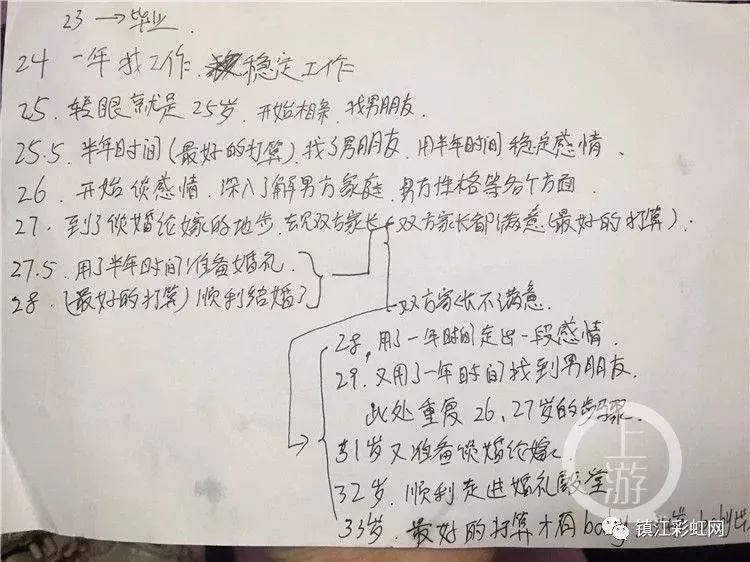 23 → 毕业.
24 一年找工作 稳定工作
25. 转眼就是25岁 开始相亲 找男朋友.
25.5. 半年时间(最好的打算)找了男朋友 用半年时间稳定感情、
26. 开始谈感情、深入了解男方家庭 男方性格等各个方面.
27. 到了谈婚论嫁的地步.去见双方家长 双方家长都满意(最好的打算).
27.5. 用了半年时间准备婚礼.
28. (最好的打算)顺利结婚了
双方家长不满意.
28, 用了一年时间走出一段感情.
29. 又用了一年时间找到男朋友.
此处重复26、27岁的步骤.
31岁又准备谈婚论嫁.
32岁、顺利走进婚礼殿堂
33岁. 最好的打算才有baby
上游
镇江彩虹网